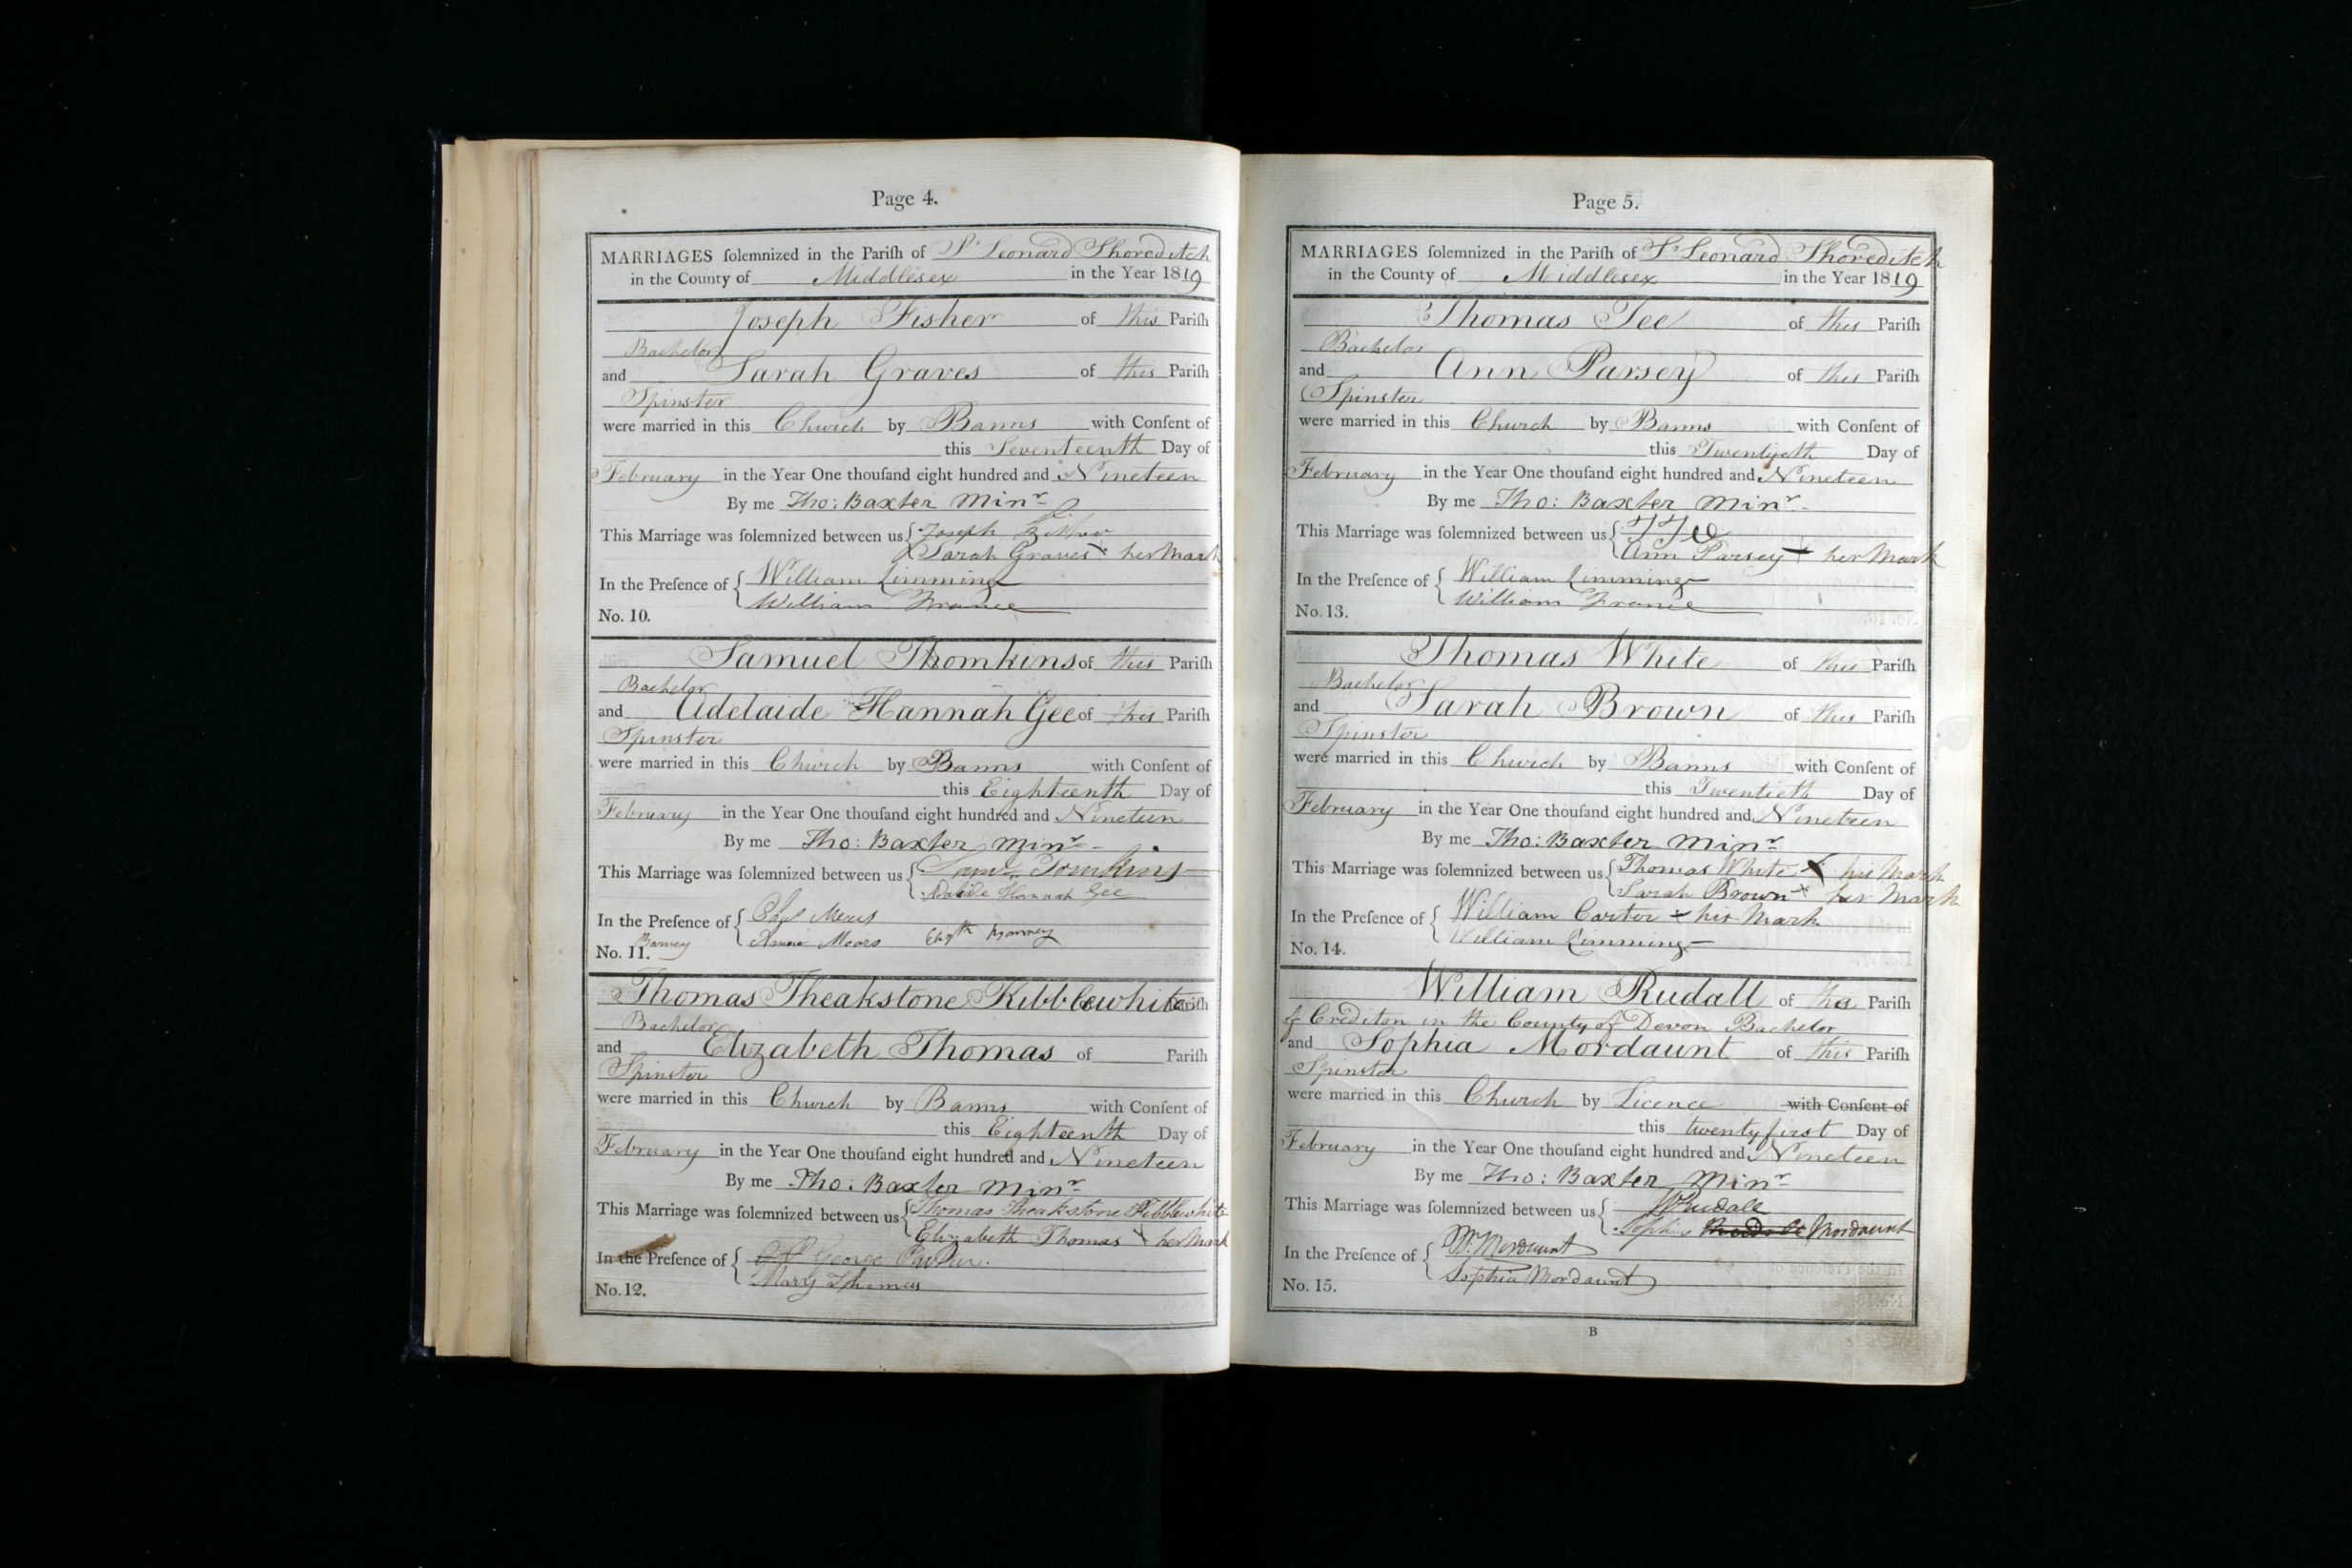 Page 4.
MARRIAGES ſolemnized in the Pariſh of St Leonard Shoreditch
in the County of Middlesex in the Year 1819
Joseph Fisher of this Pariſh
Bachelor
and Sarah Graves of this Pariſh
Spinster
were married in this Church by Banns with Conſent of
this Seventeenth Day of
February in the Year One thouſand eight hundred and Nineteen
By me Tho: Baxter Minr
This Marriage was ſolemnized between us Joseph Fisher
Sarah Graves x her Mark
In the Preſence of William Limming
William France
No. 10.
Samuel Thomkins of this Pariſh
Bachelor
and Adelaide Hannah Gee of this Pariſh
Spinster
were married in this Church by Banns with Conſent of
this Eighteenth Day of
February in the Year One thouſand eight hundred and Nineteen
By me Tho: Baxter Minr
This Marriage was ſolemnized between us Saml Tomkins
Hannah Gee
In the Preſence of
Moors
No. 11.
Thomas Theakstone Kibblewhite Pariſh
Bachelor
and Elizabeth Thomas of Pariſh
Spinster
were married in this Church by Banns with Conſent of
this Eighteenth Day of
February in the Year One thouſand eight hundred and Nineteen
By me Tho: Baxter Minr
This Marriage was ſolemnized between us Thomas Theakstone Kibblewhite
Elizabeth Thomas x her Mark
In the Preſence of George
Mary Thomas
No. 12.
Page 5.
MARRIAGES ſolemnized in the Pariſh of St Leonard Shoreditch
in the County of Middlesex in the Year 1819
Thomas Tee of this Pariſh
Bachelor
and Ann Parsey of this Pariſh
Spinster
were married in this Church by Banns with Conſent of
this Twentyeth Day of
February in the Year One thouſand eight hundred and Nineteen
By me Tho: Baxter Minr
This Marriage was ſolemnized between us T Tee
Ann Parsey x her Mark
In the Preſence of William Limming
William France
No. 13.
Thomas White of this Pariſh
Bachelor
and Sarah Brown of this Pariſh
Spinster
were married in this Church by Banns with Conſent of
this Twentieth Day of
February in the Year One thouſand eight hundred and Nineteen
By me Tho: Baxter Minr
This Marriage was ſolemnized between us Thomas White x his Mark
Sarah Brown x her Mark
In the Preſence of William Carter x his Mark
William Limming
No. 14.
William Rudall of the Pariſh
of Crediton in the County of Devon Bachelor
and Sophia Mordaunt of this Pariſh
Spinster
were married in this Church by Licence with Conſent of
this twenty first Day of
February in the Year One thouſand eight hundred and Nineteen
By me Tho: Baxter Minr
This Marriage was ſolemnized between us W Rudall
Sophia Mordaunt
In the Preſence of Wm Mordaunt
Sophia Mordaunt
No. 15.
B